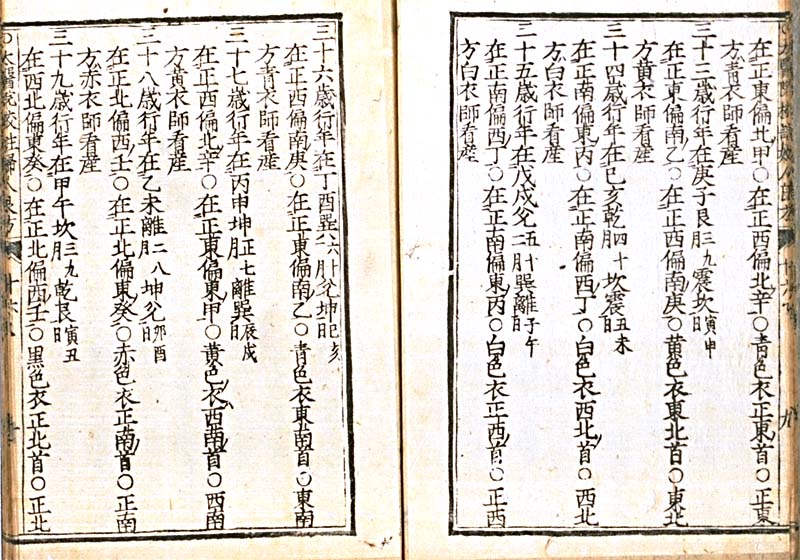 在正東偏北甲○在正西偏北辛○青色衣正東首○正東
方青衣師看産
三十三歲行年在庚子艮月三九震坎日寅申
在正東偏南乙○在正西偏南庚○黄色衣東北首○東北
方黄衣師看産
三十四歲行年在己亥乾月四十坎震日丑未
在正南偏東丙○在正南偏西丁○白色衣西北首○西北
方白衣師看産
三十五歲行年在戊戌兊月五十巽離日子午
在正南偏西丁○在正南偏東丙○白色衣正西首○正西
方白衣師看産
三十六歲行年在丁酉巽月六兊坤日巳亥
在正西偏南庚○在正東偏南乙○青色衣東南首○東南
方青衣師看産
三十七歲行年在丙申坤月正七離巽日辰戌
在正西偏北辛○在正東偏東甲○黄色衣西南首○西南
方黄衣師看産
三十八歲行年在乙未離月二八坤兊日卯酉
在正北偏西壬○在正北偏東癸○赤色衣正南首○正南
方赤衣師看産
三十九歲行年在甲午坎月三九乾艮日寅丑
在西北偏東癸○在正北偏西壬○黒色衣正北首○正北
○太醫院校註婦人良方